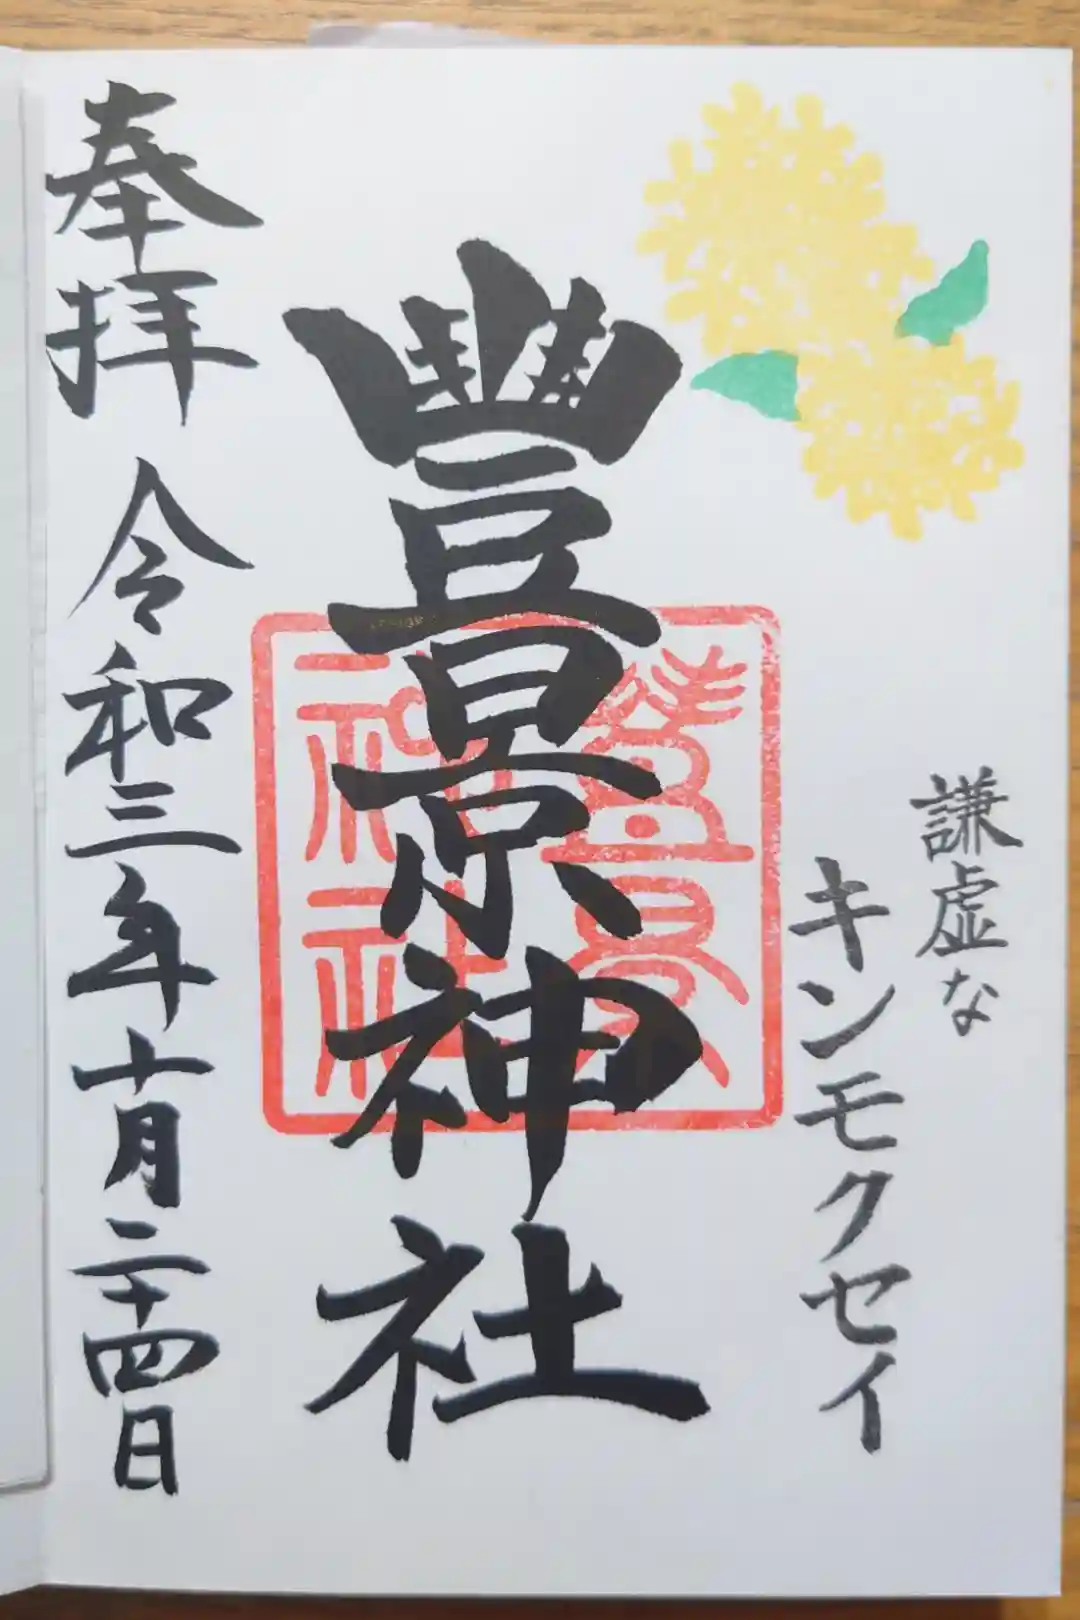 謙虚な
キンモクセイ
豐景神社
豐景
神社
奉拝 令和三年十月二十四日